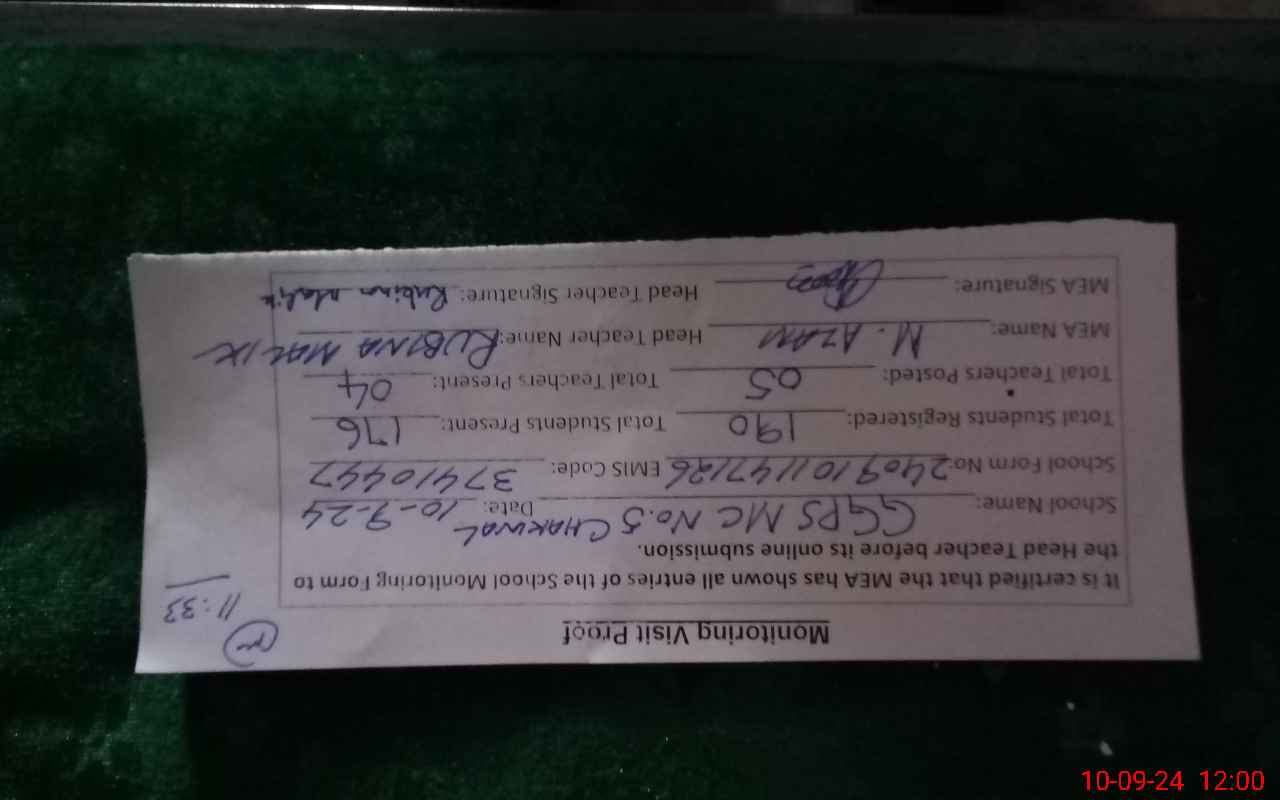 Monitoring Visit Proof
11:33
It is certified that the MEA has shown all entries of the School Monitoring Form to
the Head Teacher before its online submission.
School Name: GGPS MC No.5 CHAKWAL Date: 10-9-24
School Form No: 2409101147126 EMIS Code: 37410447
Total Students Registered: 190 Total Students Present: 176
Total Teachers Posted: 05 Total Teachers Present: 04
MEA Name: M. AZAM Head Teacher Name: RUBINA MALIK
MEA Signature: Head Teacher Signature: Rubina Malik
10-09-24 12:00